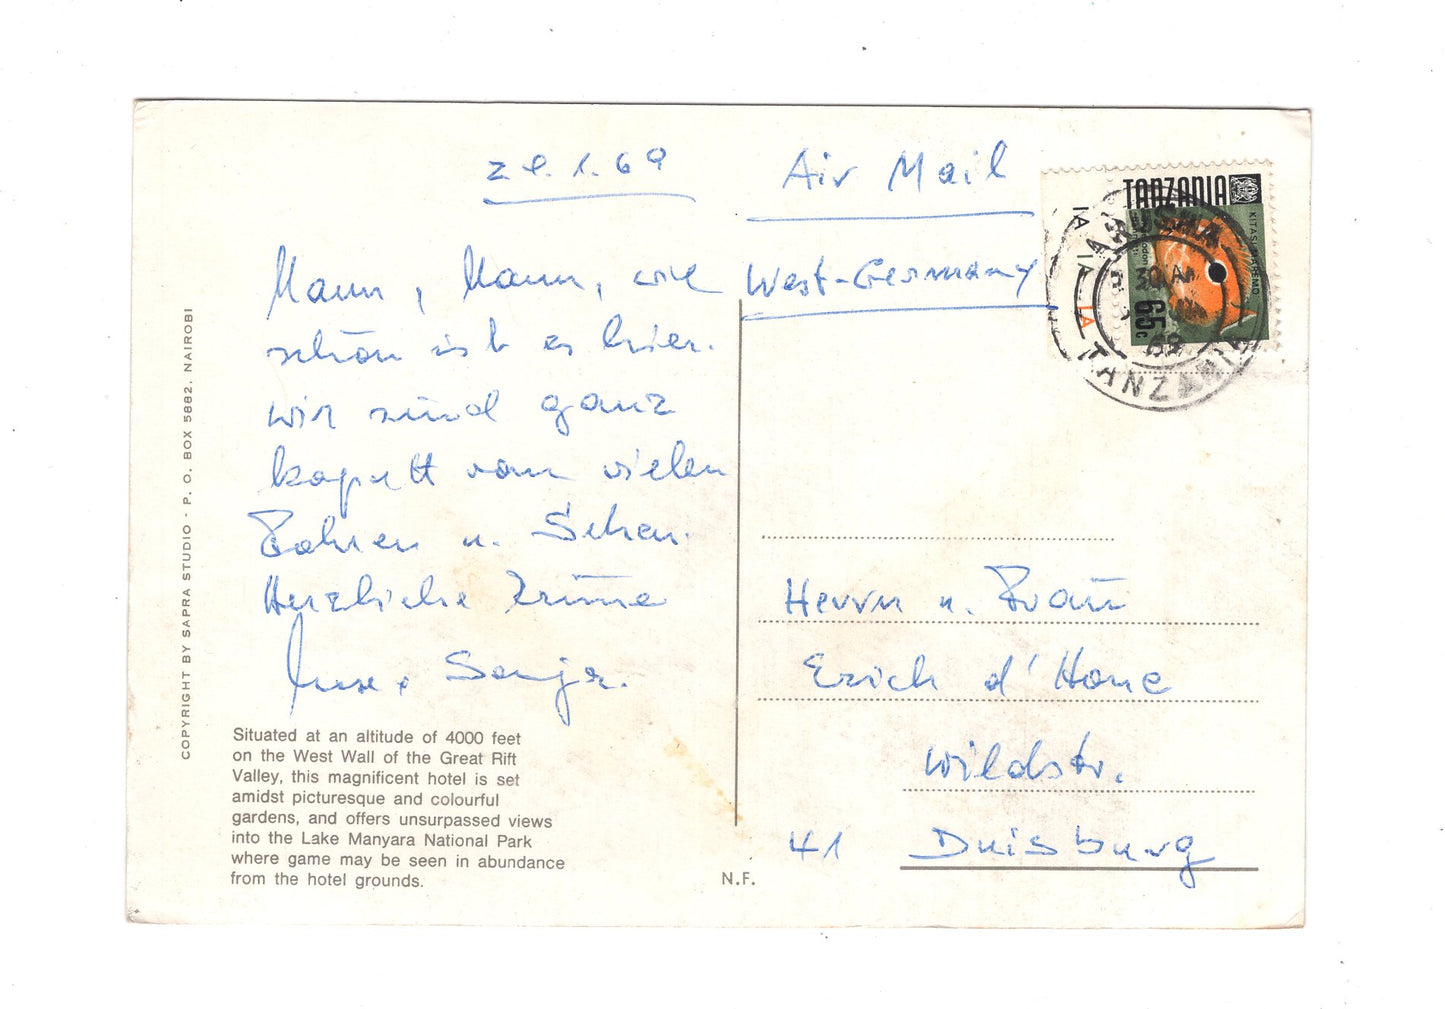 29.1.69
Mann, Mann, wie
schön ist es hier.
Wir sind ganz
kaputt vom vielen
Fahren u. Sehen.
Herzliche Grüße
Sonja.
Situated at an altitude of 4000 feet
on the West Wall of the Great Rift
Valley, this magnificent hotel is set
amidst picturesque and colourful
gardens, and offers unsurpassed views
into the Lake Manyara National Park
where game may be seen in abundance
from the hotel grounds.
COPYRIGHT BY SAPRA STUDIO - P. O. BOX 5882, NAIROBI
N.F.
Air Mail
West-Germany
TANZANIA
65c
IA IA IA
ARUSHA
TANZANIA
Herrn u. Frau
Erich d'Hone
Wildstr.
41 Duisburg